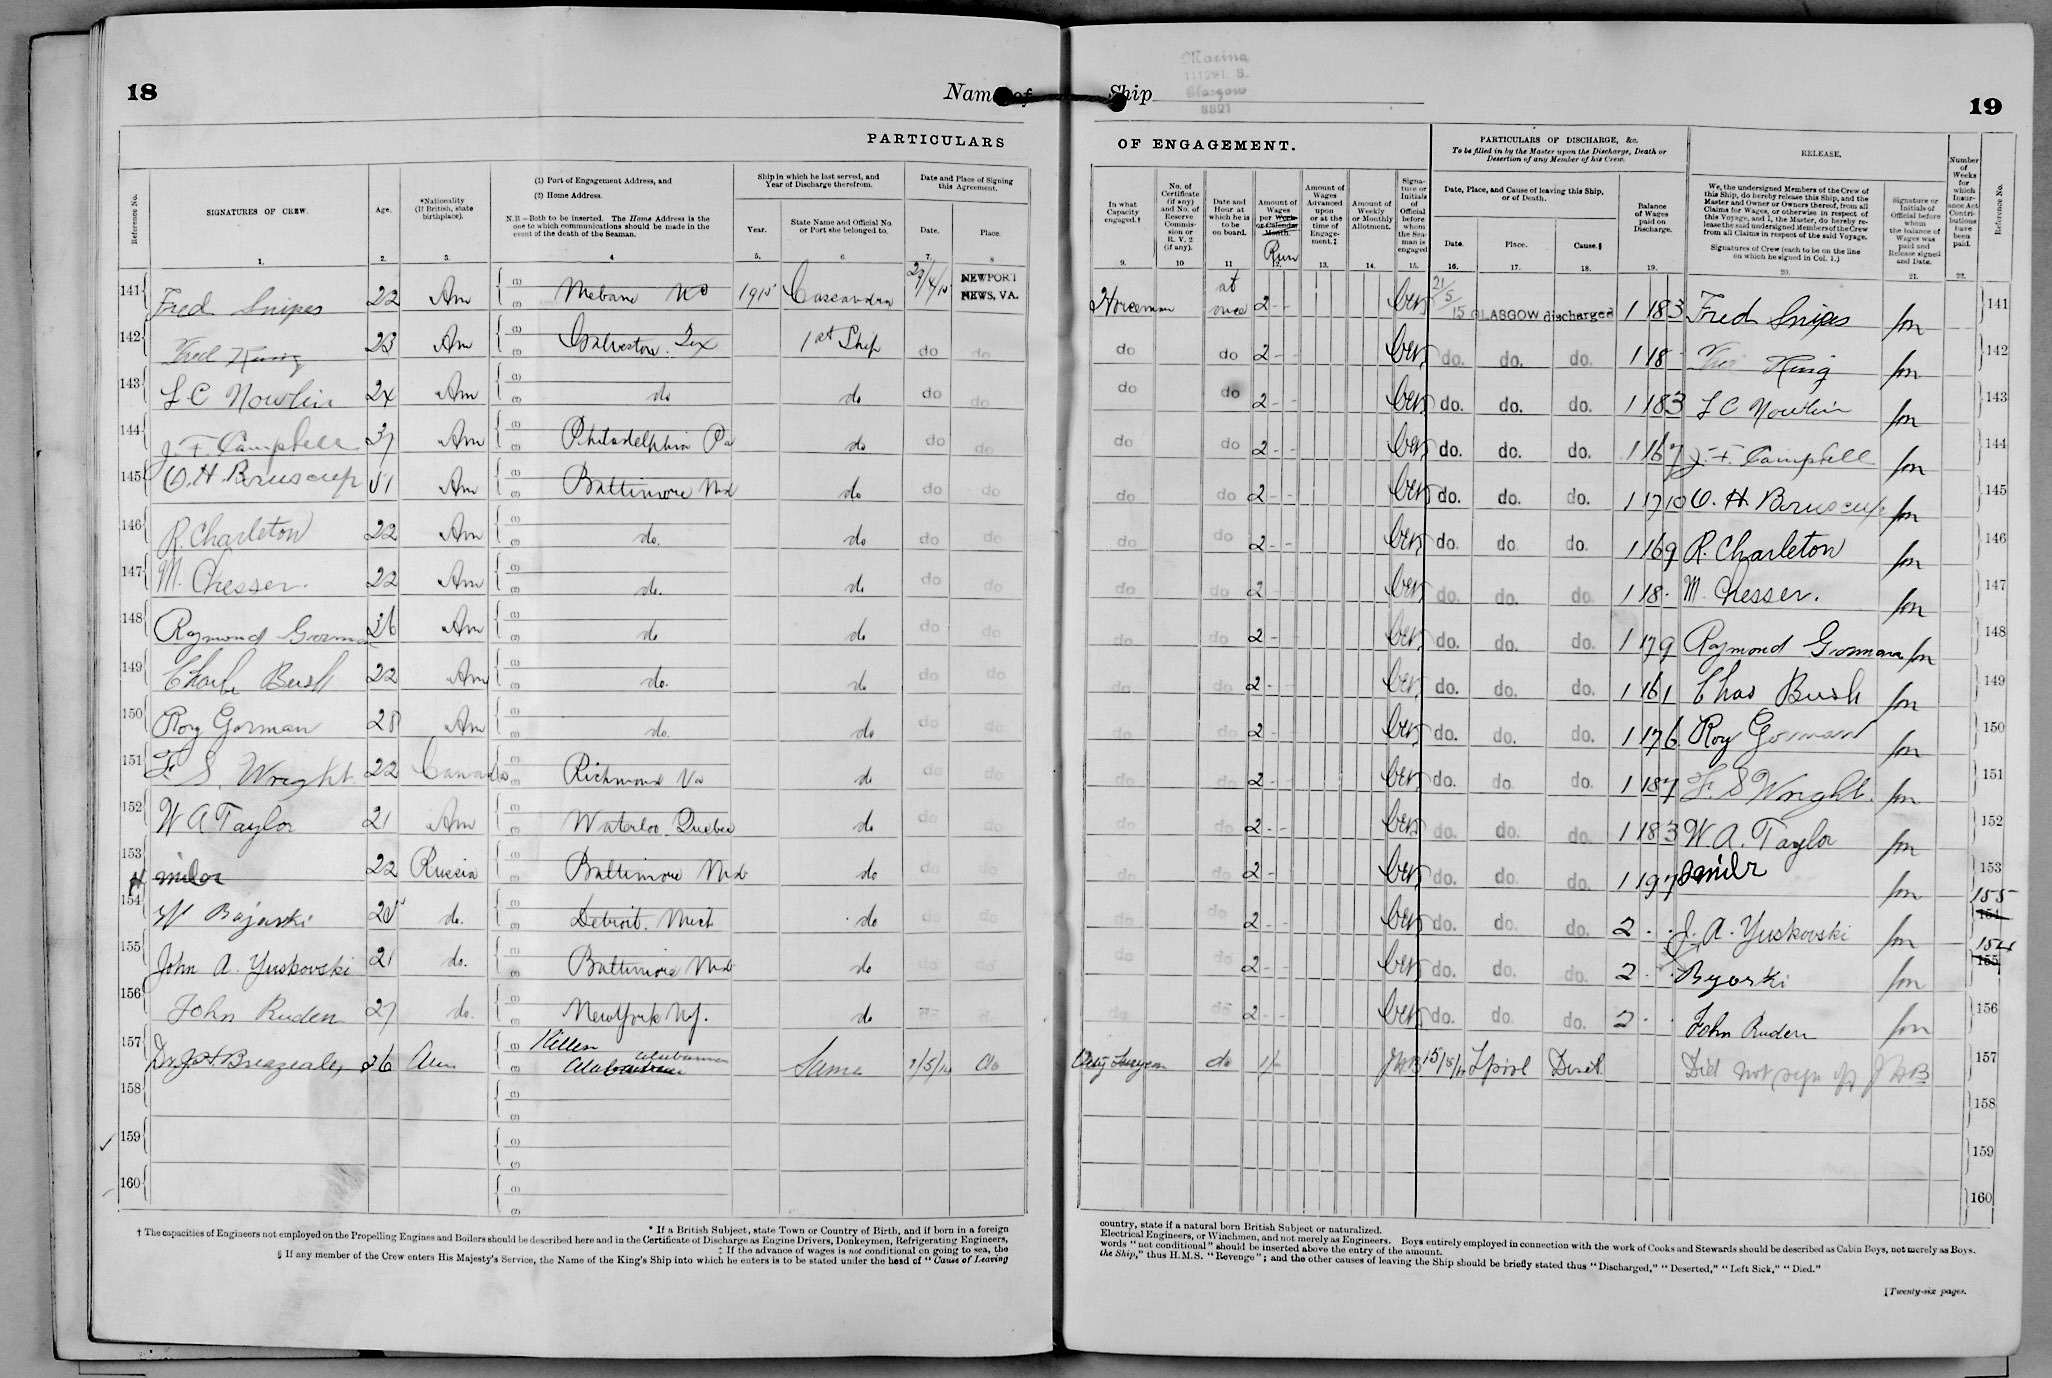 18
Name of
PARTICULARS
Reference No.
SIGNATURES OF CREW.
Age.
*Nationality (If British, state birthplace).
(1) Port of Engagement Address, and
(2) Home Address.
N.B.—Both to be inserted. The Home Address is the one to which communications should be made in the event of the death of the Seaman.
Ship in which he last served, and Year of Discharge therefrom.
Year.
State Name and Official No. or Port she belonged to.
Date and Place of Signing this Agreement.
Date.
Place.
1. 2. 3. 4 5. 6. 7. 8
141 Fred Snipes 22 Am (1) (2) Mebane NC 1915 Cassandra 29/4/15 NEWPORT NEWS, VA.
142 Fred King 23 Am (1) (2) Galveston. Tex 1st Ship do do
143 L C Nowlin 24 Am (1) (2) do do do do
144 J. F. Campbell 37 Am (1) (2) Philadelphia Pa do do do
145 O. H. Boruscup 51 Am (1) (2) Baltimore Md do do do
146 R. Charleton 22 Am (1) (2) do. do do do
147 M. Chesser. 22 Am (1) (2) do. do do do
148 Raymond Gorman 26 Am (1) (2) do do do do
149 Charlie Bush 22 Am (1) (2) do. do do do
150 Roy Gorman 28 Am (1) (2) do. do do do
151 F. S. Wright. 22 Canada (1) (2) Richmond Va do do do
152 W A Taylor 21 Am (1) (2) Waterloo. Quebec do do do
153 22 Russia (1) (2) Baltimore Md do do do
154 Bajorski do. (1) (2) Detroit. Mich do do do
155 John A. Yuskovski 21 do. (1) (2) Baltimore Md do do do
156 John Ruden 27 do. (1) (2) New York NY. do do do
157 Dr. Breazeale, 26 Am (1) (2) Killen Alabama Same do
158 (1) (2)
159 (1) (2)
160 (1) (2)
* If a British Subject, state Town or Country of Birth, and if born in a foreign
† The capacities of Engineers not employed on the Propelling Engines and Boilers should be described here and in the Certificate of Discharge as Engine Drivers, Donkeymen, Refrigerating Engineers,
‡ If the advance of wages is not conditional on going to sea, the
§ If any member of the Crew enters His Majesty's Service, the Name of the King's Ship into which he enters is to be stated under the head of "Cause of Leaving
Marina
111291. S.
Glasgow
8821
Ship
19
OF ENGAGEMENT.
PARTICULARS OF DISCHARGE, &c.
To be filled in by the Master upon the Discharge, Death or Desertion of any Member of his Crew.
RELEASE.
In what Capacity engaged.†
No. of Certificate (if any) and No. of Reserve Commission or R. V. 2 (if any).
Date and Hour at which he is to be on board.
Amount of Wages per Week or Calendar Month.
Run
Amount of Wages Advanced upon or at the time of Engagement.‡
Amount of Weekly or Monthly Allotment.
Signature or Initials of Official before whom the Seaman is engaged
Date, Place, and Cause of leaving this Ship, or of Death.
Date.
Place.
Cause.§
Balance of Wages paid on Discharge.
We, the undersigned Members of the Crew of this Ship, do hereby release this Ship, and the Master and Owner or Owners thereof, from all Claims for Wages, or otherwise in respect of this Voyage, and I, the Master, do hereby release the said undersigned Members of the Crew from all Claims in respect of the said Voyage.
Signatures of Crew (each to be on the line on which he signed in Col. 1.)
Signature or Initials of Official before whom the balance of Wages was paid and Release signed and Date.
Number of Weeks for which Insurance Act Contributions have been paid.
Reference No.
9. 10 11 12. 13. 14. 15. 16. 17. 18. 19. 20. 21. 22.
Horseman at once 2 - - 21/5/15 GLASGOW discharged 1 18 3 Fred Snipes 141
do do 2 - - do. do. do. 1 18 - King 142
do do 2 - - do. do. do. 1 18 3 L C Nowlin 143
do do 2 - - do. do. do. 1 16 7 J. F. Campbell 144
do do 2 - - do. do. do. 1 17 10 O. H. Boruscup 145
do do 2 - - do. do. do. 1 16 9 R. Charleton 146
do do 2 - - do. do. do. 1 18 - M. Chesser. 147
do do 2 - - do. do. do. 1 17 9 Raymond Gorman 148
do do 2 - - do. do. do. 1 16 1 Chas Bush 149
do do 2 - do. do. do. 1 17 6 Roy Gorman 150
do do 2 - - do. do. do. 1 18 7 F. S Wright. 151
do do 2 - - do. do. do. 1 18 3 W. A. Taylor 152
do do 2 - do. do. do. 1 19 7 153
do do 2 - - do. do. do. 2 - - J. A. Yuskovski 155 154
do do 2 - - do. do. do. 2 - - Byorski 154 155
do do 2 - - do. do. do. 2 - - John Ruden 156
Surgeon do 1/- Lpool Did not sign off 157
158
159
160
country, state if a natural born British Subject or naturalized.
Electrical Engineers, or Winchmen, and not merely as Engineers. Boys entirely employed in connection with the work of Cooks and Stewards should be described as Cabin Boys, not merely as Boys.
words "not conditional" should be inserted above the entry of the amount.
the Ship," thus H.M.S. "Revenge"; and the other causes of leaving the Ship should be briefly stated thus "Discharged," "Deserted," "Left Sick," "Died."
[Twenty-six pages.